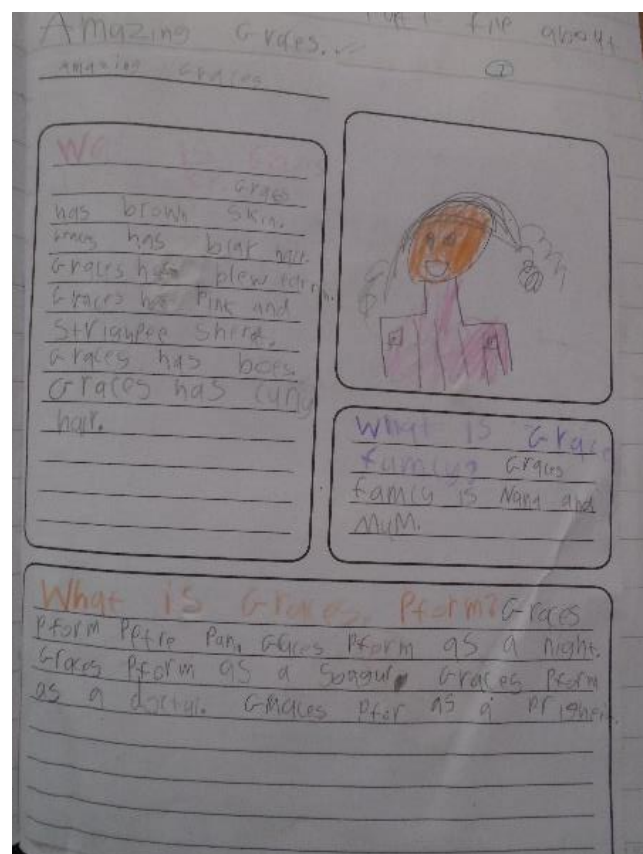 Amazing Graces.
file about
amazing Graces
2
Graces
has brown skin.
Graces has blak hair.
Graces has blew
Graces has Pink and
Striaupee Sherd.
Graces has boes.
Graces has curly
hair.
What is Grace
family? Graces
family is Nana and
MuM.
What is Graces. Pform? Graces
Pform Petre Pan. Graces Pform as a night.
Graces Pform as a Graces Pform
as a doctur. Graces Pfor as a